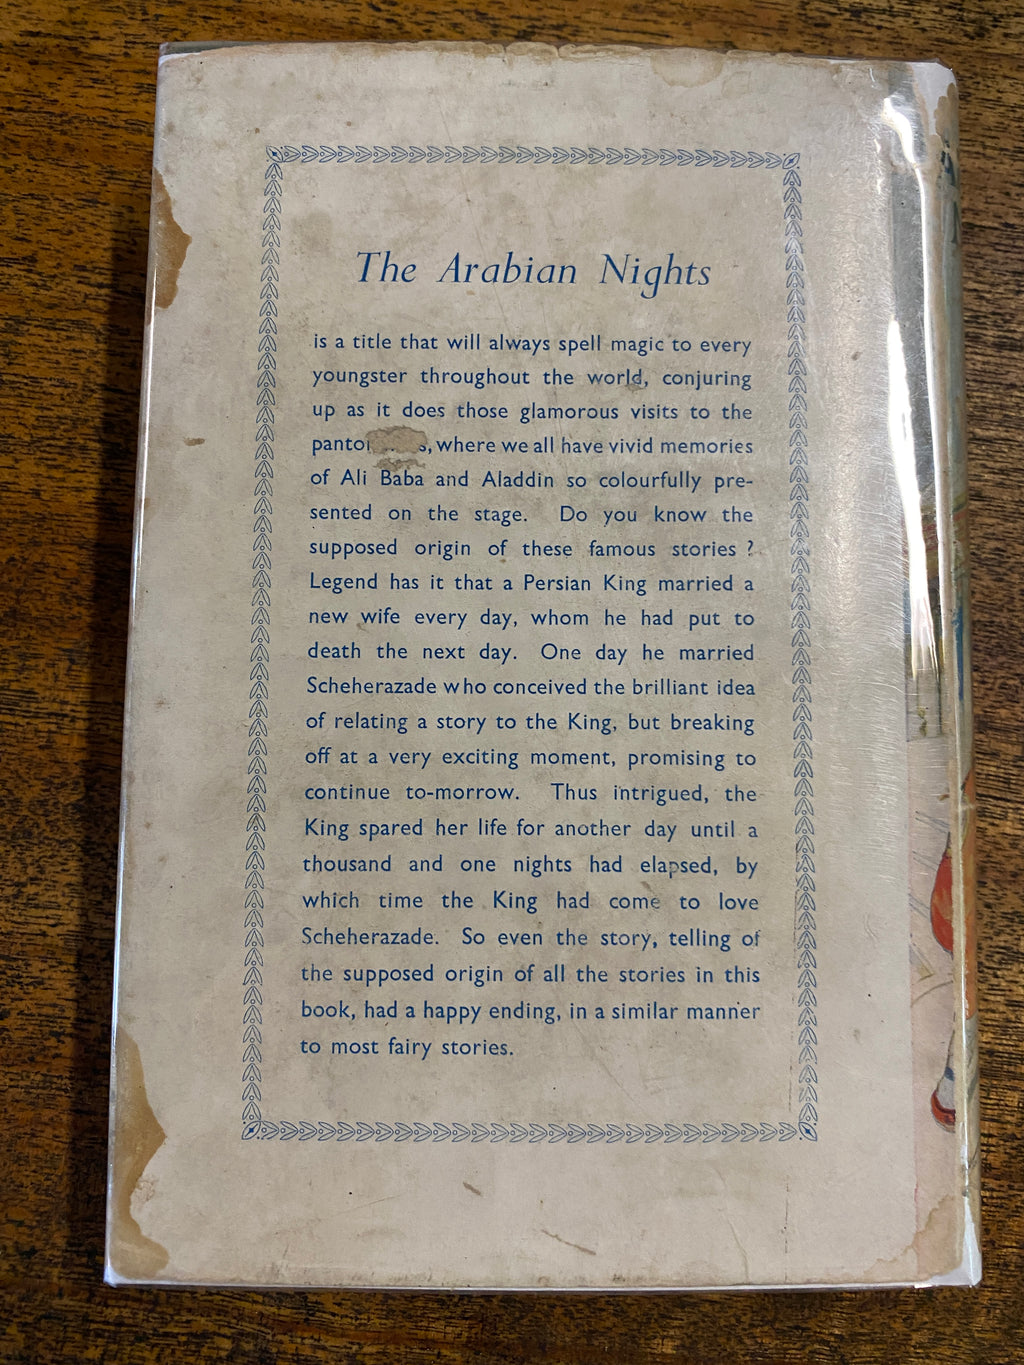 The Arabian Nights
is a title that will always spell magic to every
youngster throughout the world, conjuring
up as it does those glamorous visits to the
where we all have vivid memories
of Ali Baba and Aladdin so colourfully pre-
sented on the stage. Do you know the
supposed origin of these famous stories ?
Legend has it that a Persian King married a
new wife every day, whom he had put to
death the next day. One day he married
Scheherazade who conceived the brilliant idea
of relating a story to the King, but breaking
off at a very exciting moment, promising to
continue to-morrow. Thus intrigued, the
King spared her life for another day until a
thousand and one nights had elapsed, by
which time the King had come to love
Scheherazade. So even the story, telling of
the supposed origin of all the stories in this
book, had a happy ending, in a similar manner
to most fairy stories.